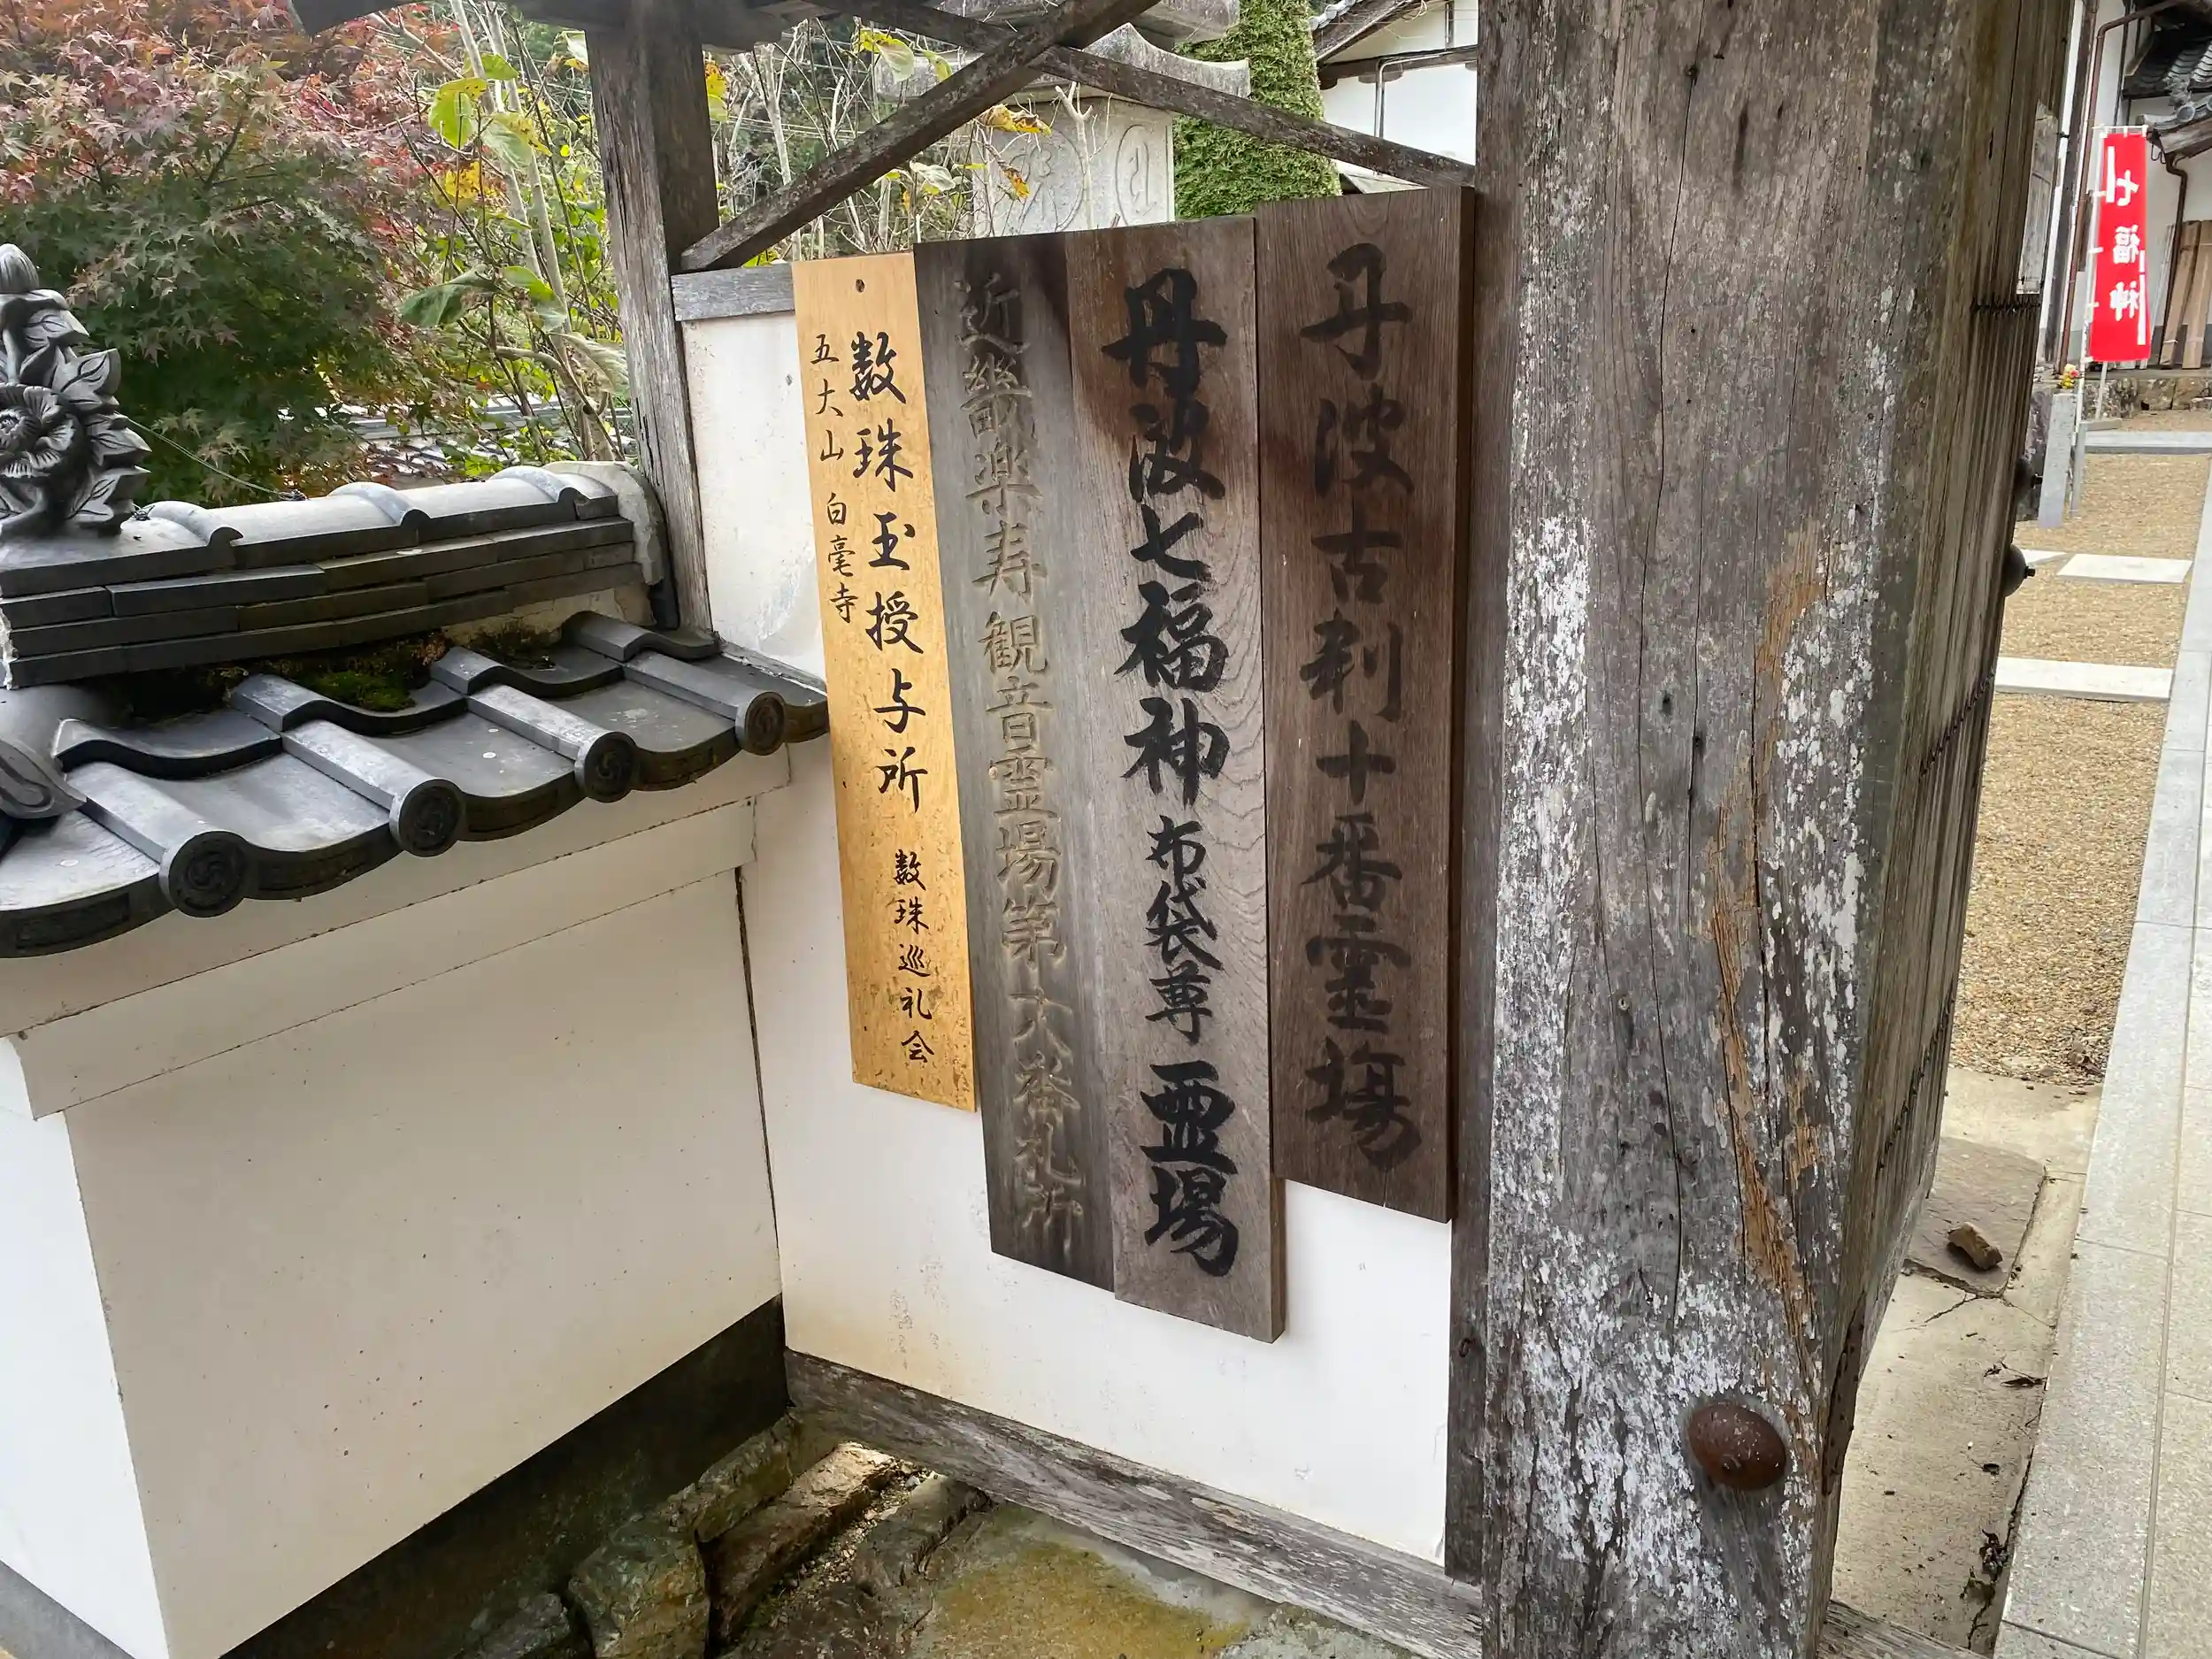 丹波古刹十番霊場
丹波七福神 布袋尊 霊場
近畿楽寿観音霊場第十八番札所
数珠玉授与所 数珠巡礼会
五大山 白毫寺
七福神